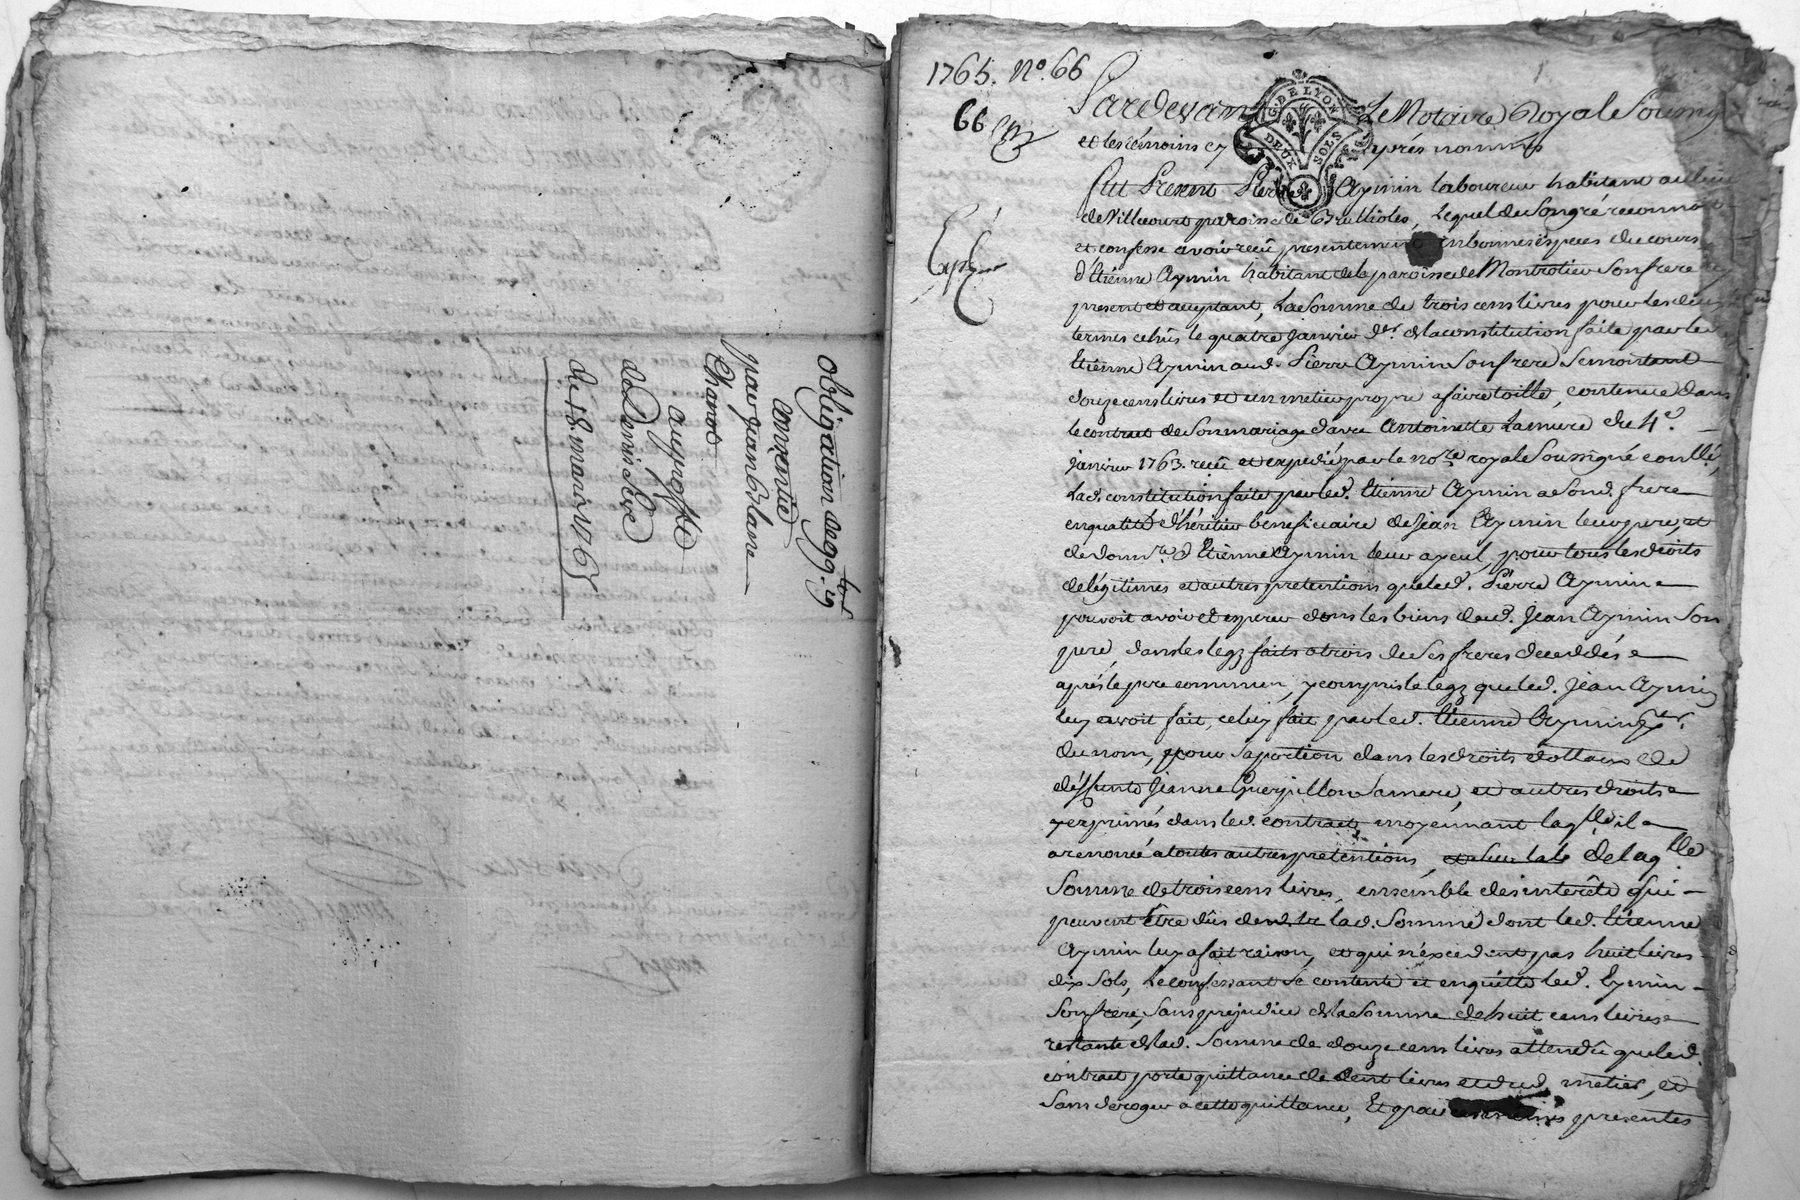 obligation de 99.# 19
consentie
par Jean Blanc
Charot
au proffit
de Denis Are
du 18. mars 1765
1765. No. 66
66
Expé
G. DE LYON
DEUX SOLS
Pardevant Le Notaire Royal Soussigné
et les témoins cy après nommés
fut Present Pierre Aymin laboureur habitant au lieu
de Villecourt paroisse de Brullioles, Lequel de Son gré reconnoit
et confesse avoir reçû presentement en bonnes espèces du cours
d'Etienne Aymin habitant de la paroisse de Montrotier Son frere
present et acceptant, La Somme de trois cens livres pour les deux
termes echûs le quatre Janvier d.er de la constitution faite par led.
Etienne Aymin aud. Pierre Aymin Son frere Se montant
douze cens livres et un metier propre a faire toille, contenue dans
le contrat de Son mariage d'avec Antoinette Lamure du 4.e
Janvier 1763. reçû et expedié par le no.re royal Soussigné controllé,
Lad. constitution faite par led. Etienne Aymin a Sond. frere
en qualité d'héritier beneficiaire de Jean Aymin leur pere, et
de Etienne Aymin leur ayeul, pour tous les droits
de légitimes et autres pretentions que led. Pierre Aymin
pouvoit avoir et esperer dans les biens dud. Jean Aymin Son
pere dans les legz faits a trois de Ses freres decedés
après le pere commun, y compris le legz que led. Jean Aymin
luy avoit fait, celuy fait par led. Etienne Aymin
du nom, pour Sa portion dans les droits dottaux de
deffunte Jeanne Guerpillon Sa mere, et autres droits
exprimés dans led. contrat, moyennant laq.lle il
a renoncé a toutes autres pretentions, de laq.lle
Somme de trois cens livres, ensemble des interêts qui
peuvent être dûs de lad. Somme dont led. Etienne
Aymin luy a fait raison, et qui n'éxcedent pas huit livres
dix Sols, Le confessant Se contente et en quitte led. Eymin
Son frere, Sans prejudice de la Somme de huit cens livres
restante de lad. Somme de douze cens livres attendû que led.
contrat porte quittance de cent livres et dud. metier, et
Sans deroger a cette quittance, Et par presentes